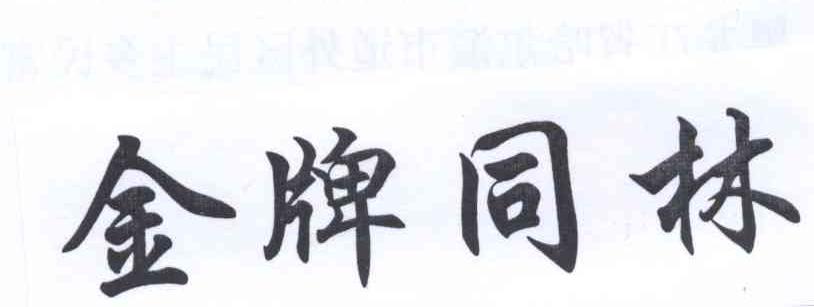 金牌同林